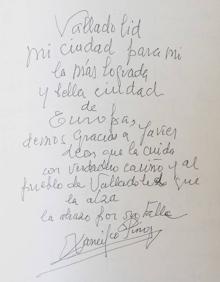 Valladolid
mi ciudad para mi
la más lograda
y bella ciudad
de
Europa,
demos Gracias a Javier
León que la cuida
con verdadero cariño y al
pueblo de Valladolid que
la alza
la deseo por
Francisco Pino